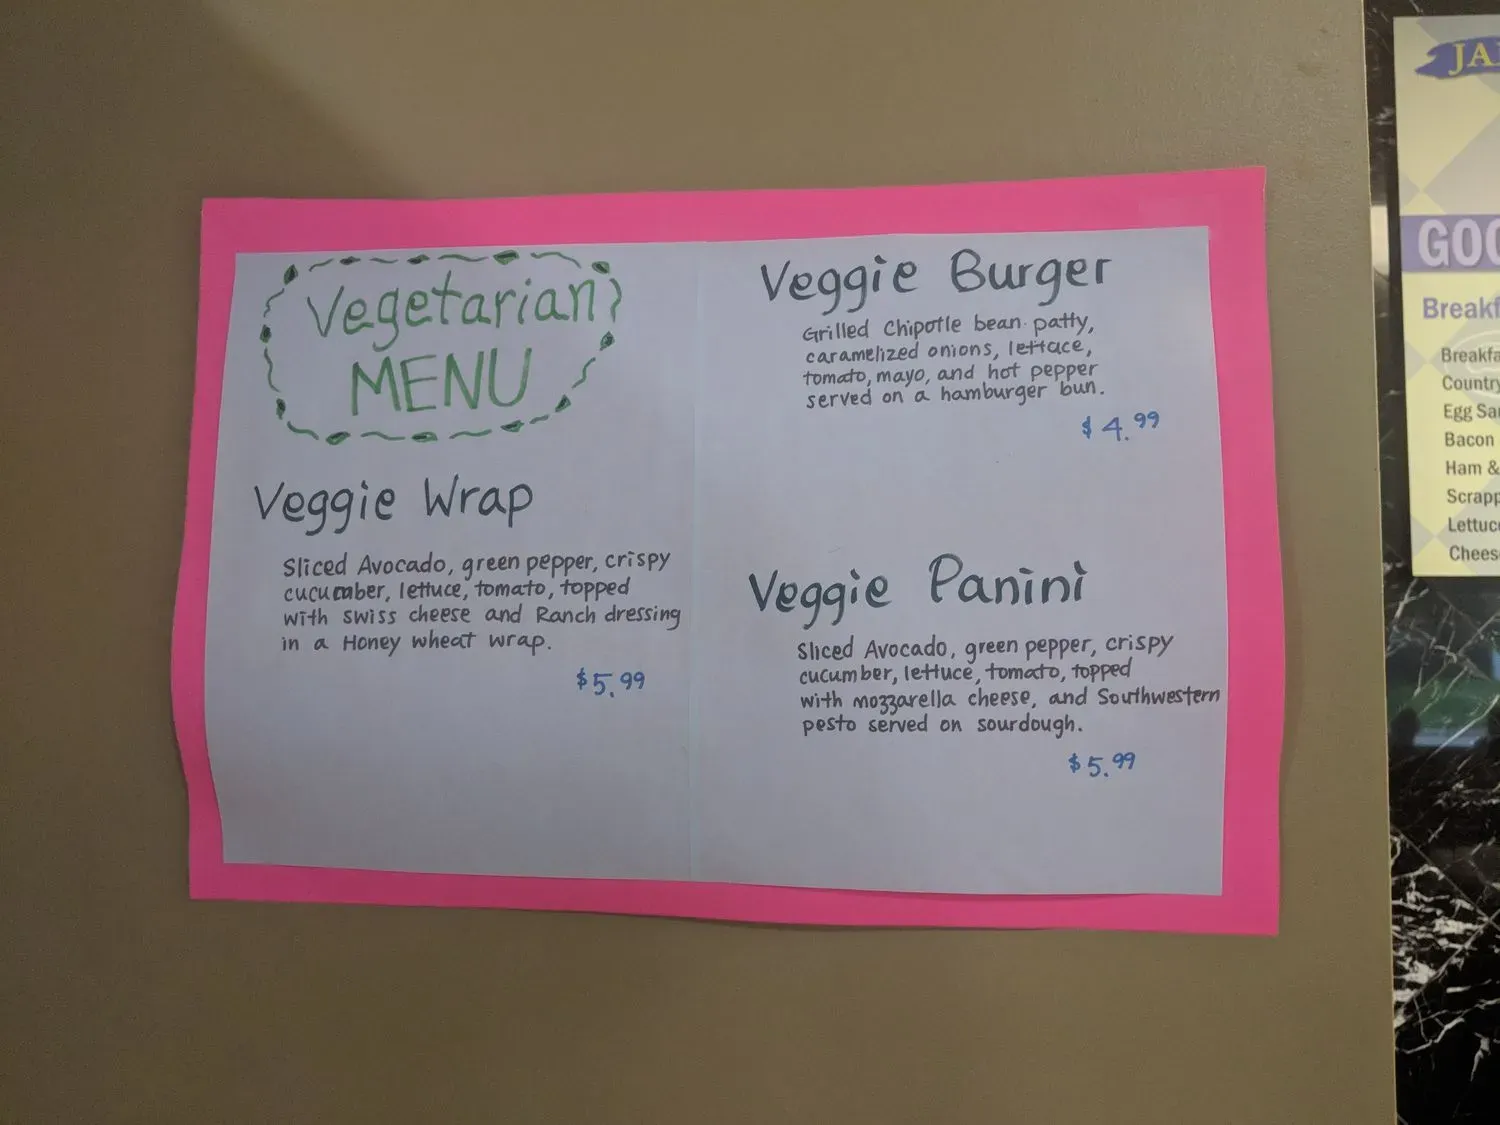 Vegetarian
MENU
Veggie Wrap
Sliced Avocado, green pepper, crispy
cucumber, lettuce, tomato, topped
with swiss cheese and Ranch dressing
in a Honey wheat wrap.
$5.99
Veggie Burger
Grilled Chipotle bean patty,
caramelized onions, lettace,
tomato, mayo, and hot pepper
served on a hamburger bun.
$4.99
Veggie Panini
Sliced Avocado, green pepper, crispy
cucumber, lettuce, tomato, topped
with mozzarella cheese, and Southwestern
pesto served on sourdough.
$5.99
JA
GOO
Breakf
Breakfa
Country
Egg Sa
Bacon
Ham &
Scrapp
Lettuc
Chees